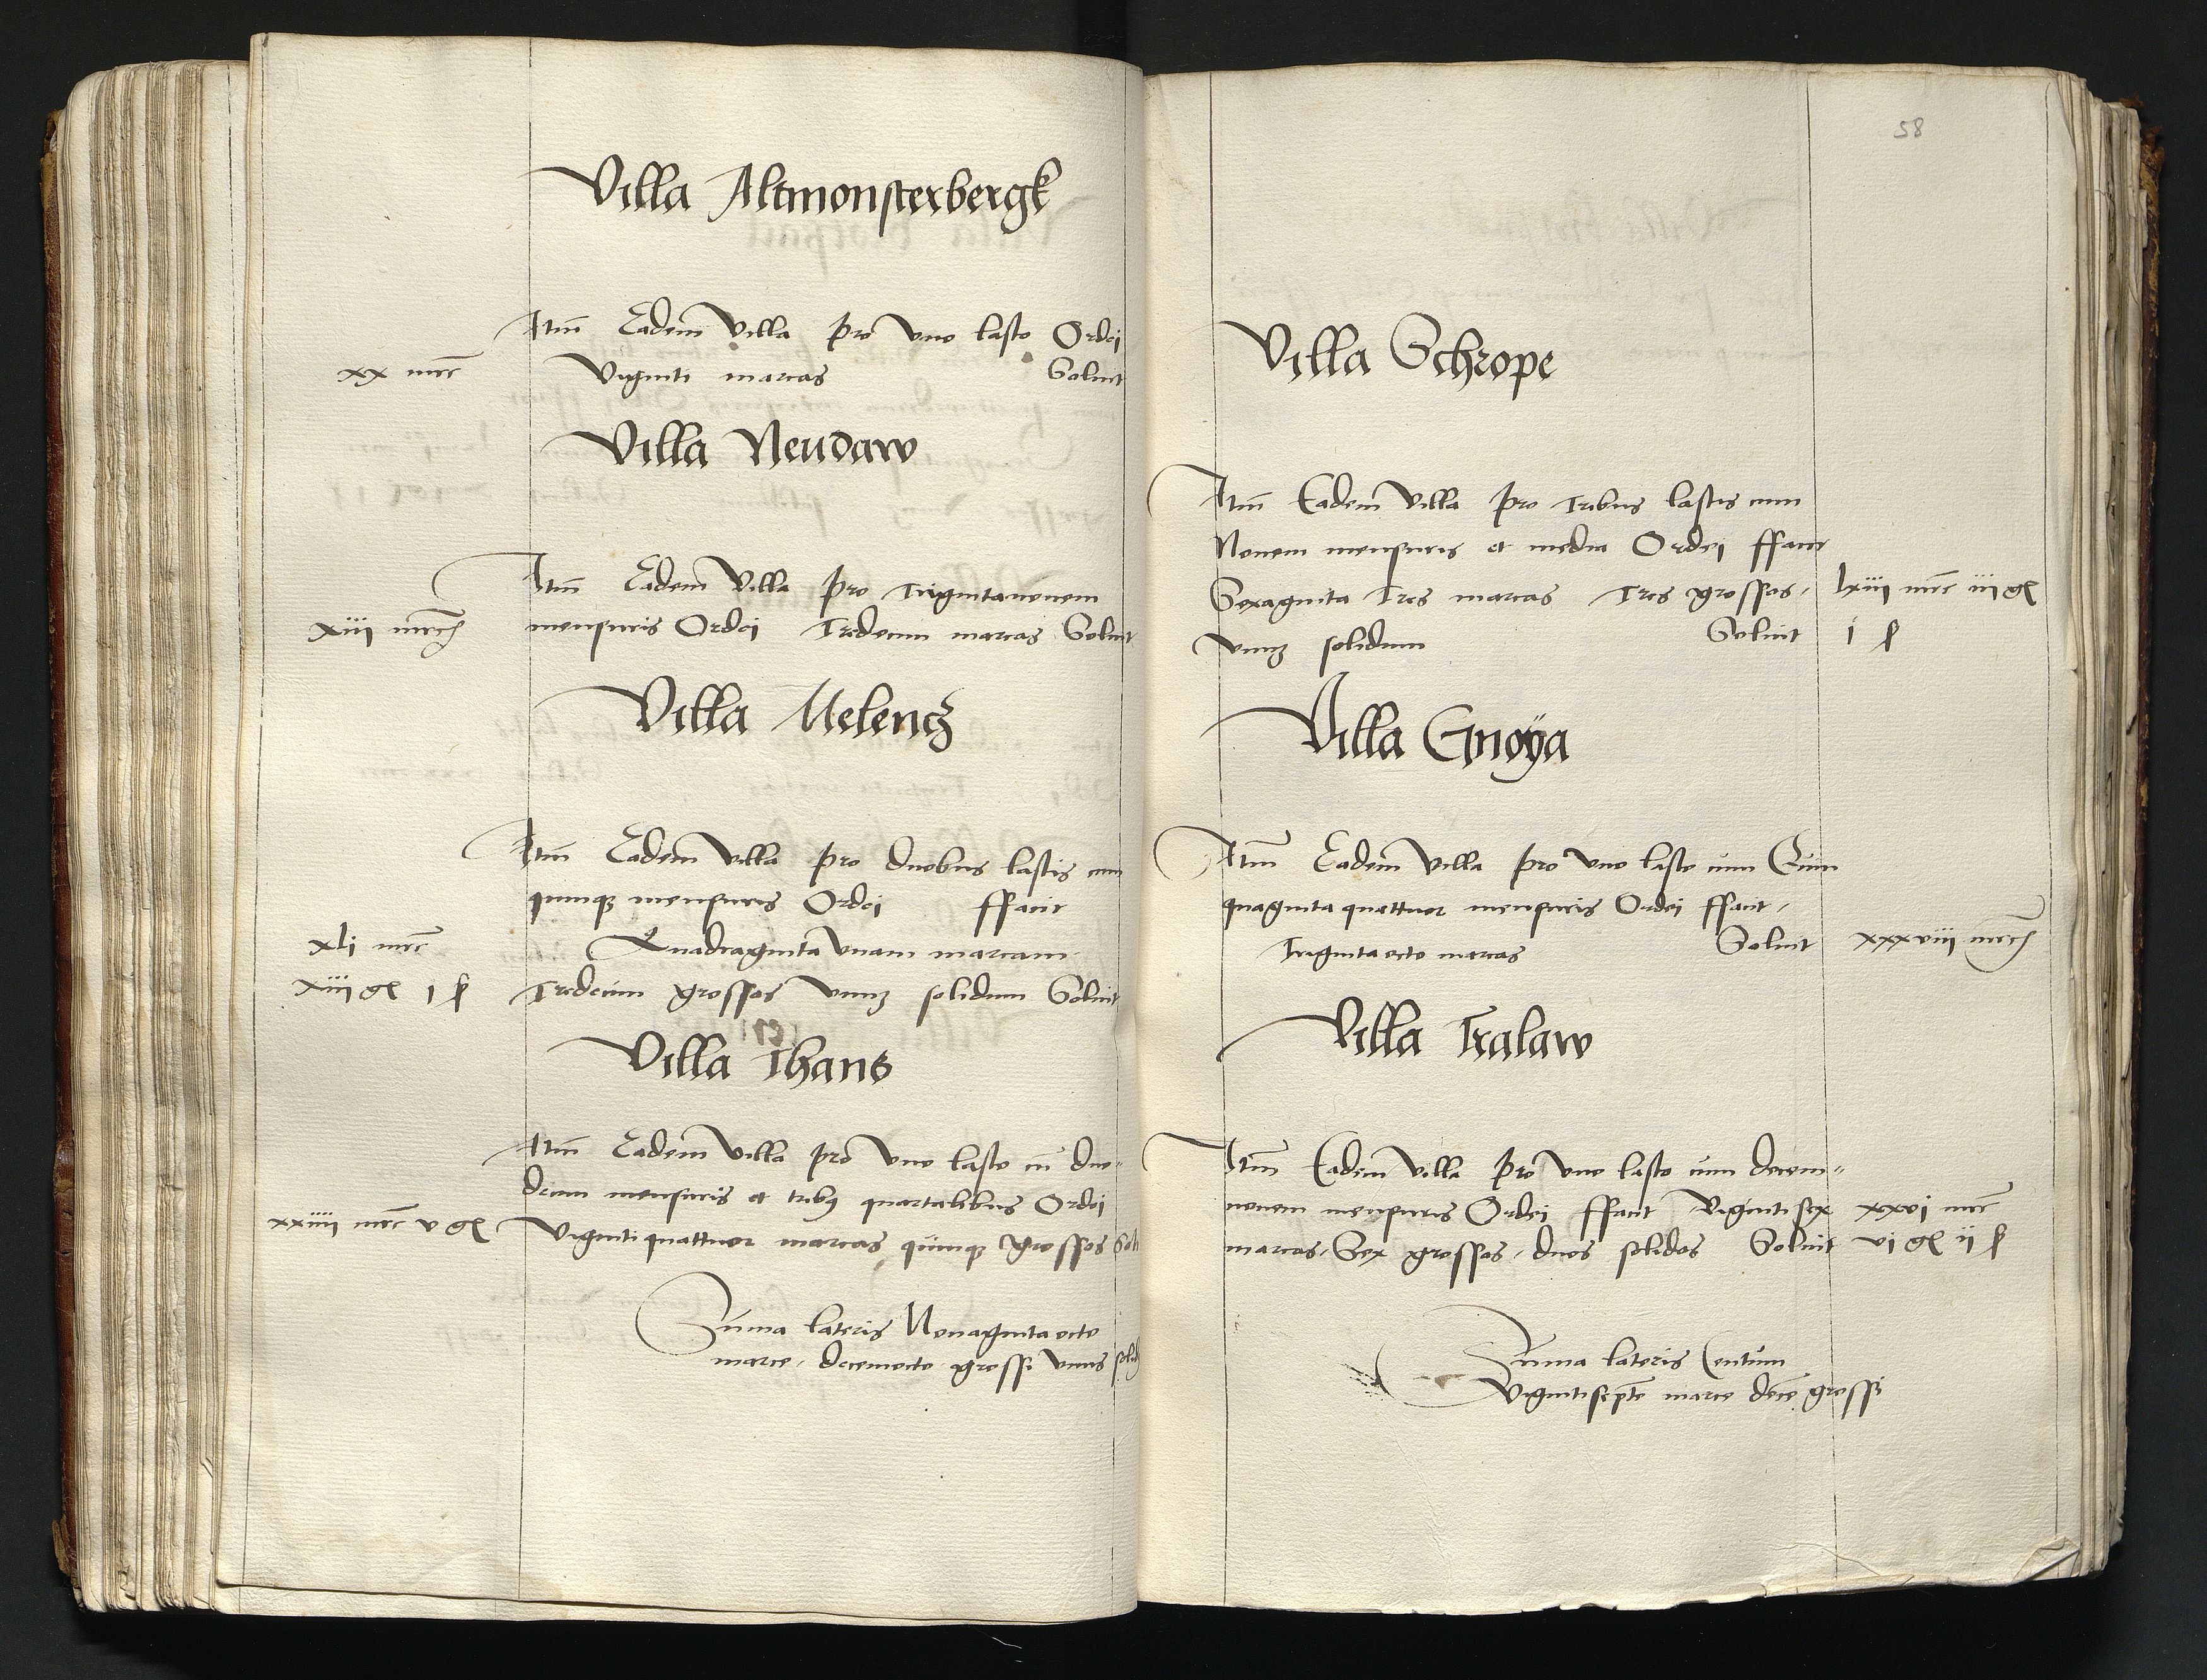 Villa Altmonsterbergk
Itm Eadem Villa Pro Vno lasto Ordei
xx mrc Viginti marcas Soluit
Villa Neudaw
Itm Eadem Villa Pro Trigintanouem
xiii mrc mensuris Ordei Tredecim marcas Soluit
Villa Melencz
Itm Eadem Villa Pro duobus lastis cum
quinqz mensuris Ordei ffacit
xli mrc Quadraginta Vnam marcam
xiii gl i ß Tredecim grossos Vnuz solidum Soluit
Villa Thans
Itm Eadem Villa Pro Vno lasto cu duo-
decim mensuris et tribz quartalibus Ordei
xxiiii mrc v gl Viginti quattuor marcas quinqz grossos Solt
Suma lateris Nonagintaocto
marce decemocto grossi Vnus solid
58
Villa Schrope
Itm Eadem Villa Pro Tribus lastis cum
Nouem mensuris et media Ordei ffacit
Sexaginta Tres marcas Tres grossos lxiii mrc iii gl
Vnuz solidum Soluit i ß
Villa Gnoÿa
Itm Eadem Villa Pro Vno lasto cum Quin
quaginta quattuor mensuris Ordei ffacit
Trigintaocto marcas Soluit xxxviii mrc
Villa Tralaw
Itm Eadem Villa Pro Vno lasto cum decem-
nouem mensuris Ordei ffacit Vigintisex xxvi mrc
marcas Sex grossos duos solidos Soluit vi gl ii ß
Suma lateris Centum
Vigintisepte marce dece grossi